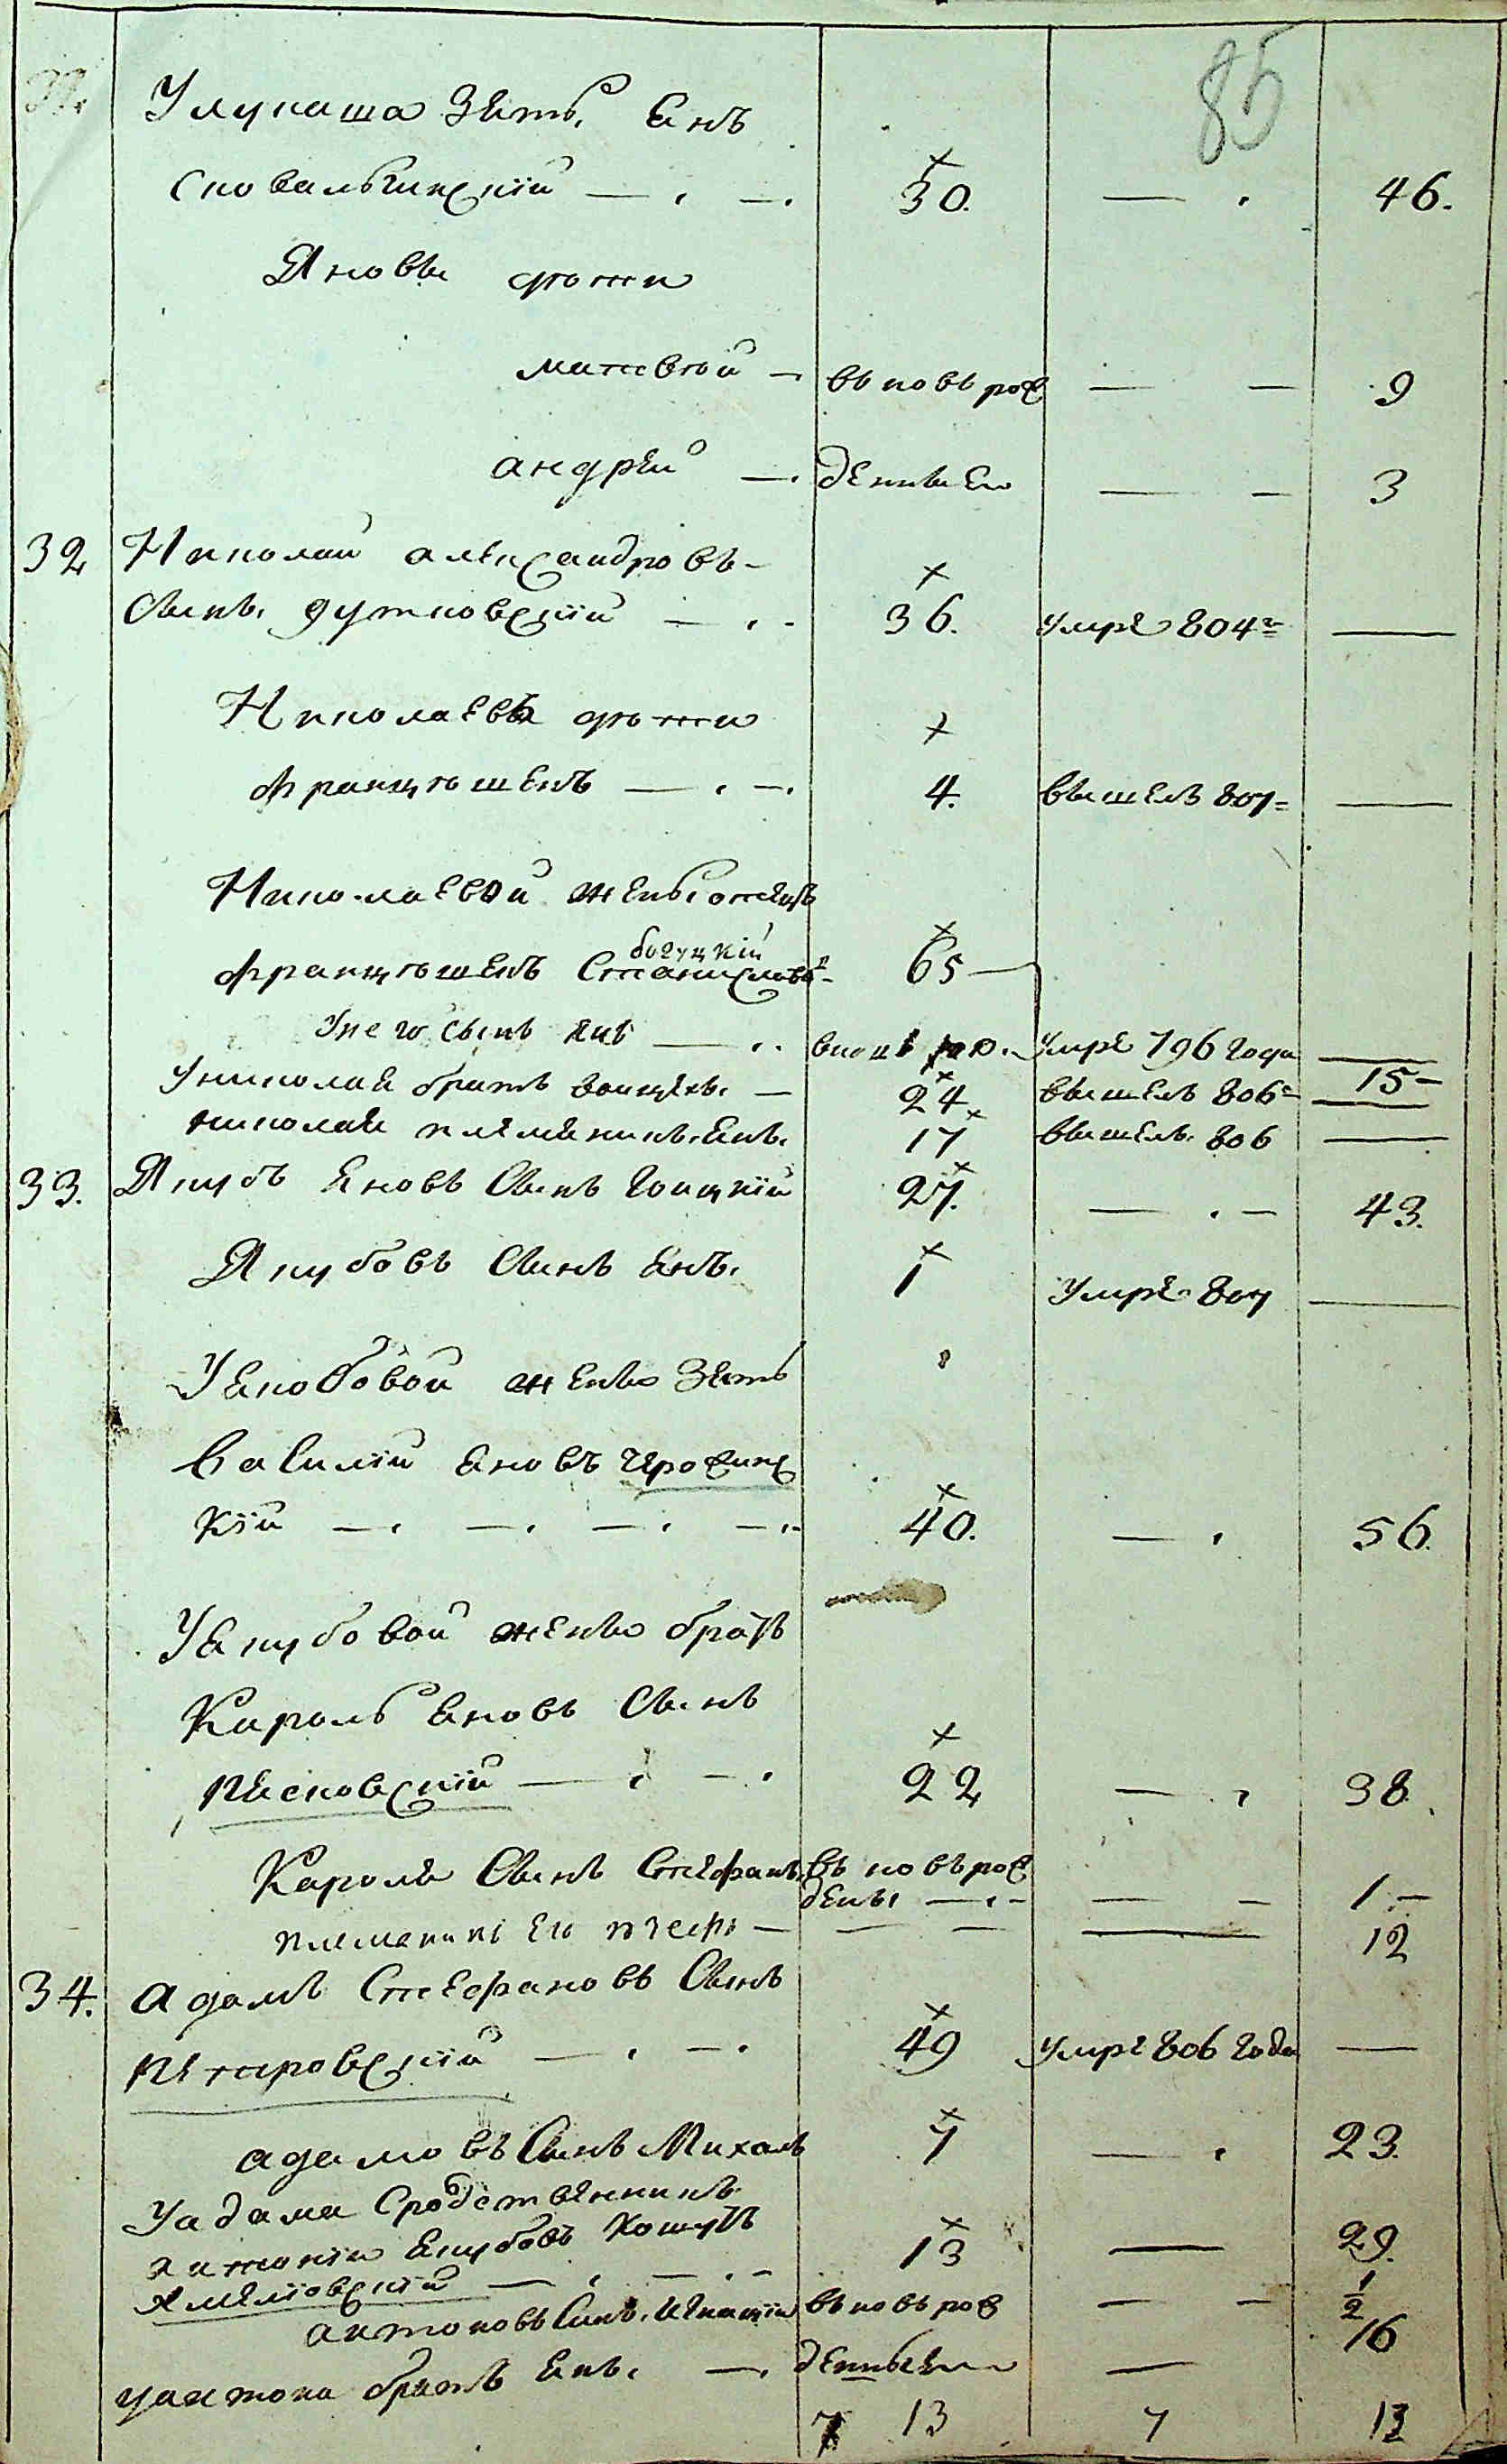 85
Улукаша Зять Янъ
Сковальчинскiй — . — . 30. — . 46.
Яновы дѣти
Матвѣй — вновь рож — — 9
Андрѣй — . денные — — 3
32 Николай Александровъ
Сынъ Дутковскiй — . - 36. умре 804г —
Николаевы дѣти
Францишекъ — . — . 4. вышелъ 807 —
Николаевой жены отецъ
Францишекъ Станиславъ Богуцкiй 65 —
У него сынъ Янъ — . . вновь ро. умре 796 года —
У николая братъ Войцехъ — 24 вышелъ 806 15 —
николая племянникъ Янъ 17 вышелъ 806 —
33. Якубъ Яновъ Сынъ 27. — . — 43.
Якубовъ Сынъ Янъ. 1 Умре 807 —
У Якобовой жены Зять
Василiй Яновъ
Кiй — . — . — . — . 40. — . 56.
У Якубовой жены братъ
Кароль Яновъ Сынъ
Пясковскiй — . — . 22 — . 38.
Кароля Сынъ Стефанъ вновь рож
денъ — . — — — 1 —
племянникъ Его — — — — 12
34. Адамъ Стефановъ Сынъ
Петровскiй — . — . 49 умре 806 года —
Адамовъ Сынъ Михалъ 7 — . 23.
У адама Сродственникъ
Антонiй Якубовъ 13 — 29.
— . — . —
Антоновъ Сынъ Игнацiй вновь рож — — 1/2
у антона братъ Янъ. — . денные — 16
13 7 13